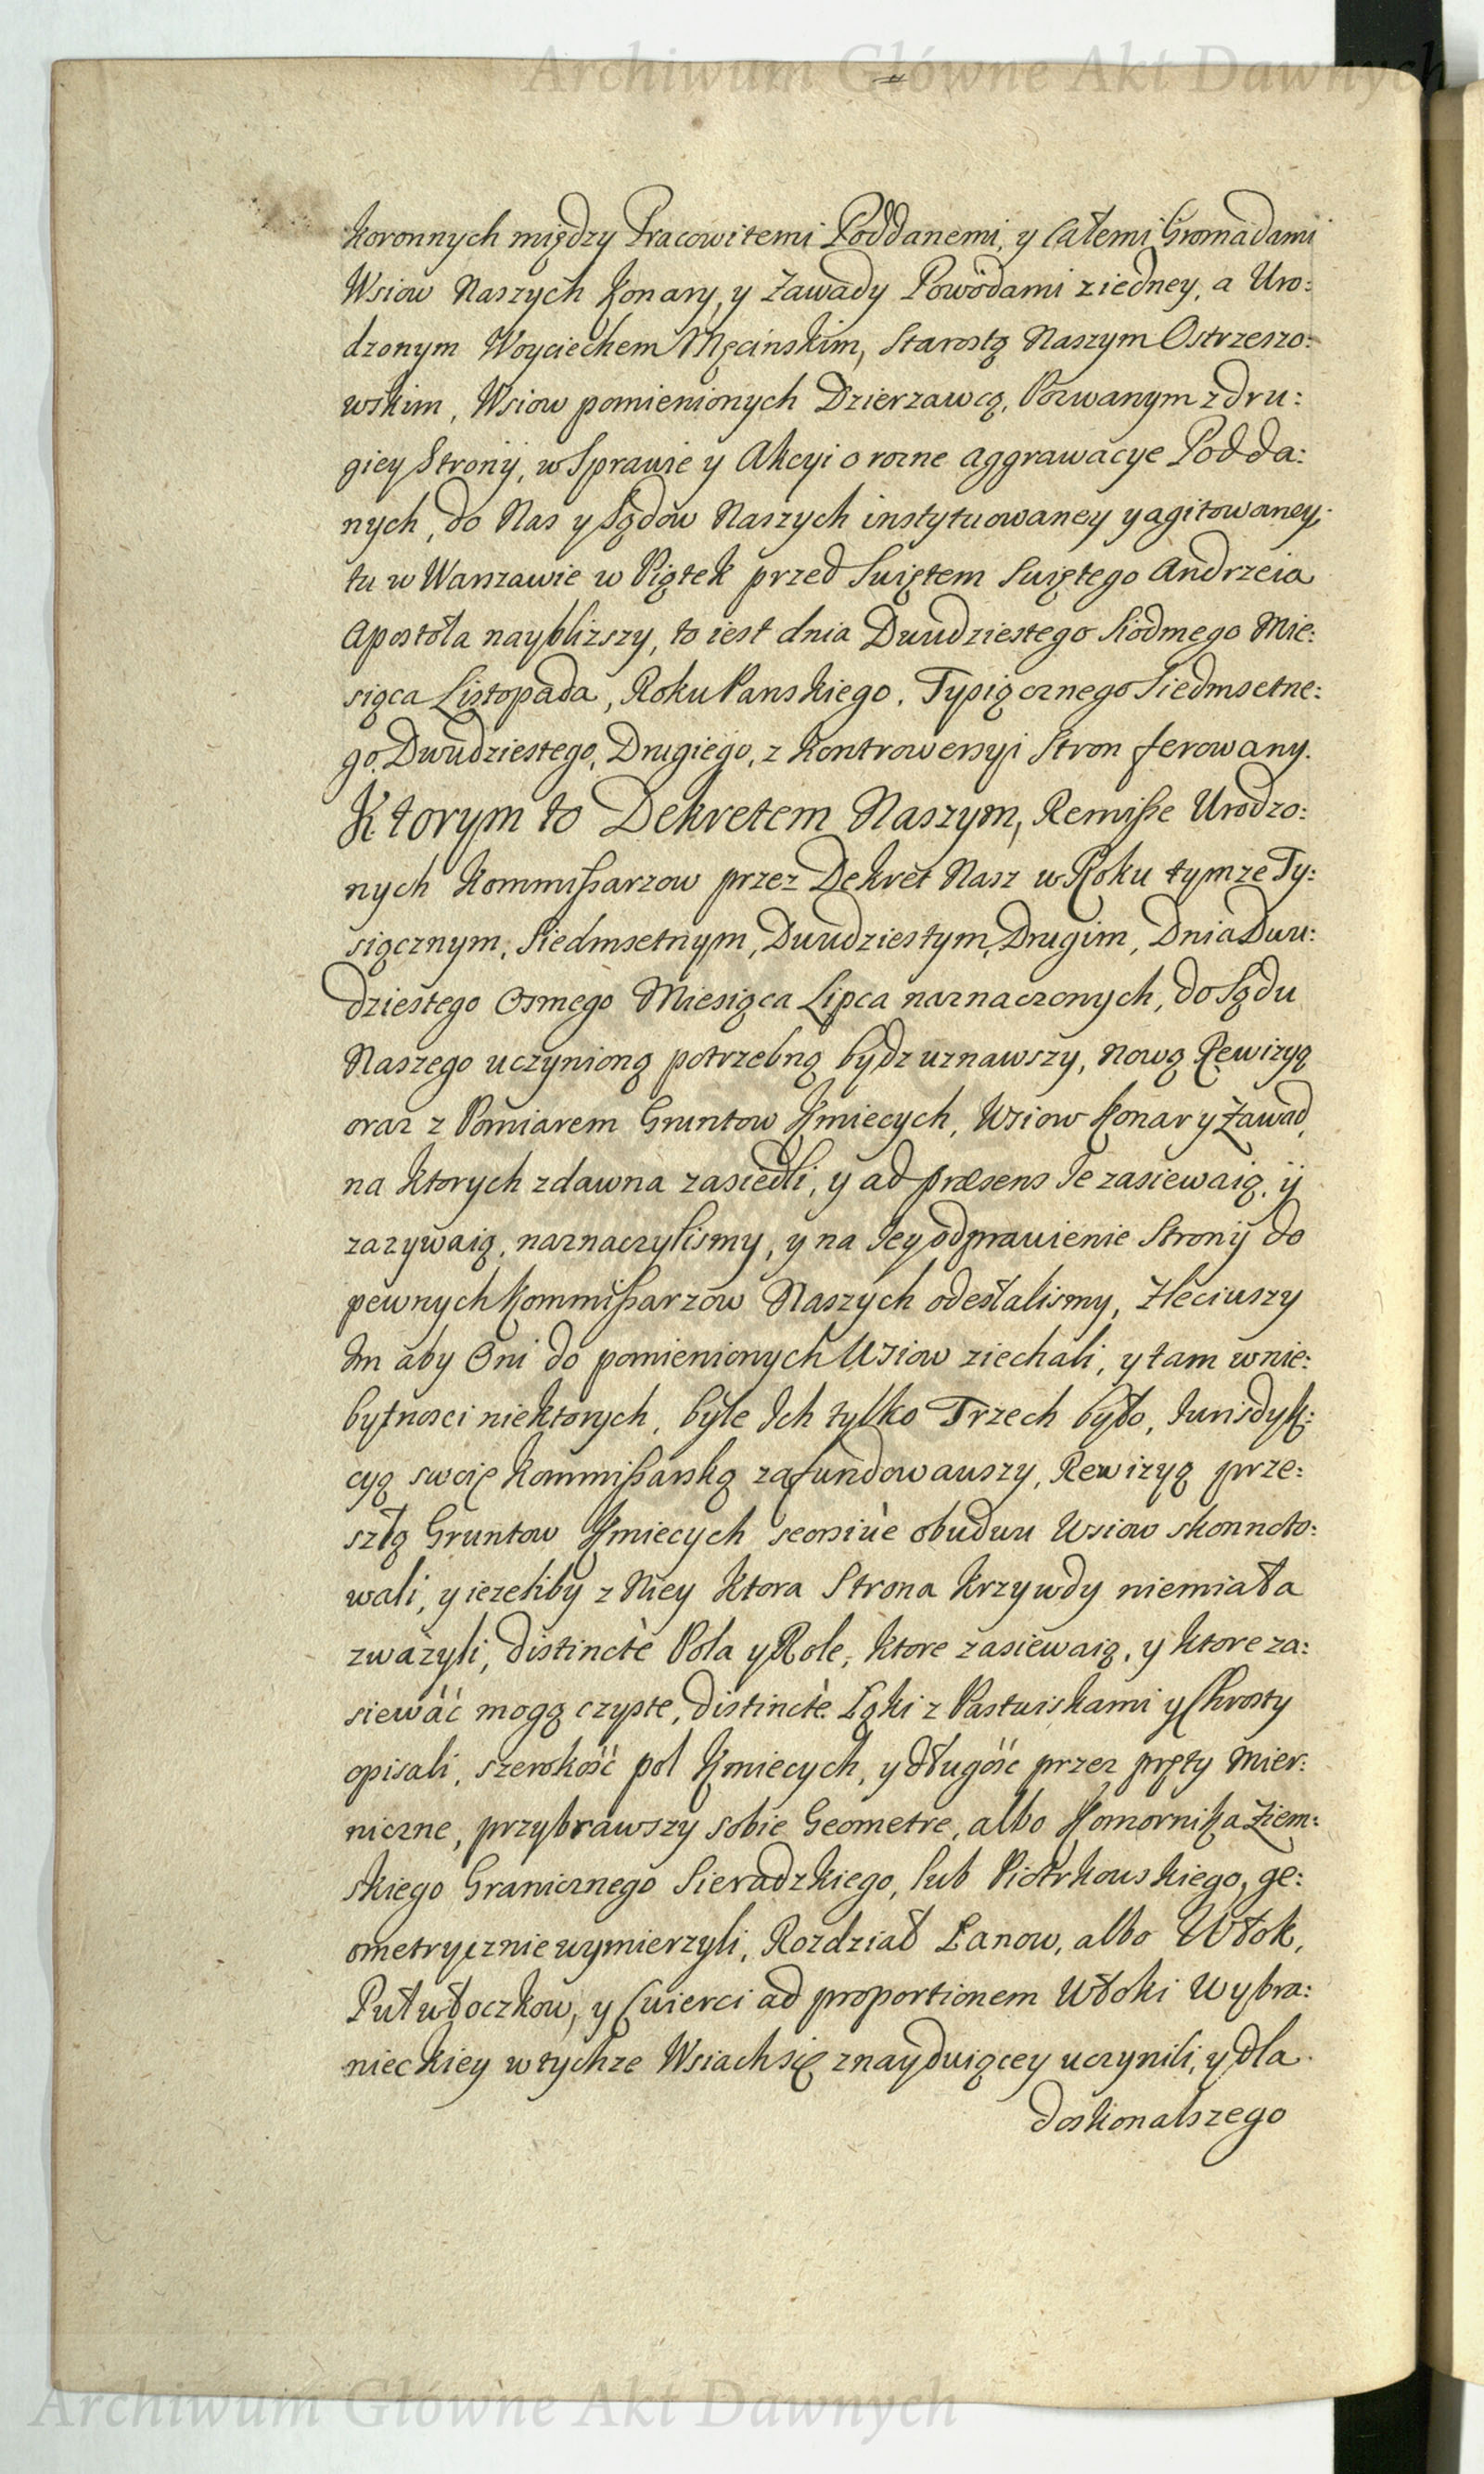 Archiwum Główne Akt Dawnych
koronnych między Pracowitemi Poddanemi, y całemi Gromadami
Wsiow Naszych Konary, y Zawady Powodami z iedney, a Uro:
dzonym Woyciechem Męcinskim, Starostą Naszym Ostrzeszo:
wskim, Wsiow pomienionych Dzierzawcą, Pozwanym z dru:
giey Strony, w Sprawie y Akcyi o rozne aggrawacye Podda:
nych, do Nas y Sądow Naszych instytuowaney y agitowaney,
tu w Warszawie w Piątek przed Swiętem Swiętego Andrzeia
Apostoła naybliższy, to iest dnia Dwudziestego Siodmego Mie:
siąca Listopada, Roku Panskiego, Tysiącznego Siedmsetne:
go, Dwudziestego, Drugiego, z kontrowersyi Stron ferowany.
Ktorym to Dekretem Naszym, Remiſse Urodzo:
nych Kommiſsarzow przez Dekret Nasz w Roku tymze Ty:
siącznym, Siedmsetnym, Dwudziestym, Drugim, Dnia Dwu:
dziestego Osmego Miesiąca Lipca naznaczonych, do Sądu
Naszego uczynioną potrzebną bydz uznawszy, nową Rewizyą
oraz z Pomiarem Gruntow Kmiecych, Wsiow Konar y Zawad,
na ktorych zdawna zasiedli, y ad præsens Je zasiewaią, y
zazywaią, naznaczylismy, y na Jey odprawienie Strony do
pewnych Kommiſsarzow Naszych odesłalismy, Zleciwszy
Im aby Oni do pomienionych Wsiow ziechali, y tam w nie:
bytnosci niektorych, byle Ich tylko Trzech było, Jurisdyk:
cyą swoię Kommiſsarską zafundowawszy, Rewizyą prze:
szłą Gruntow Kmiecych seorsivè obudwu Wsiow skonnoto:
wali, y iezeliby z Niey ktora Strona krzywdy niemiała
zwazyli, distinctè Pola y Role, ktore zasiewaią, y ktore za:
siewáć mogą czyste, distinctè Łąki z Pastwiskami y Chrosty
opisali, szerokość pol Kmiecych, y długość przez pręty Mier:
niczne, przybrawszy sobie Geometre, albo Komornika Ziem:
skiego Granicznego Sieradzkiego, lub Piotrkowskiego, ge:
ometrycznie wymierzyli, Rozdział Łanow, albo Włok,
Pułwłoczkow, y Cwierci ad proportionem Włoki Wybra:
nieckiey w tychze Wsiach się znayduiącey uczynili, y dla
doskonalszego
Archiwum Główne Akt Dawnych